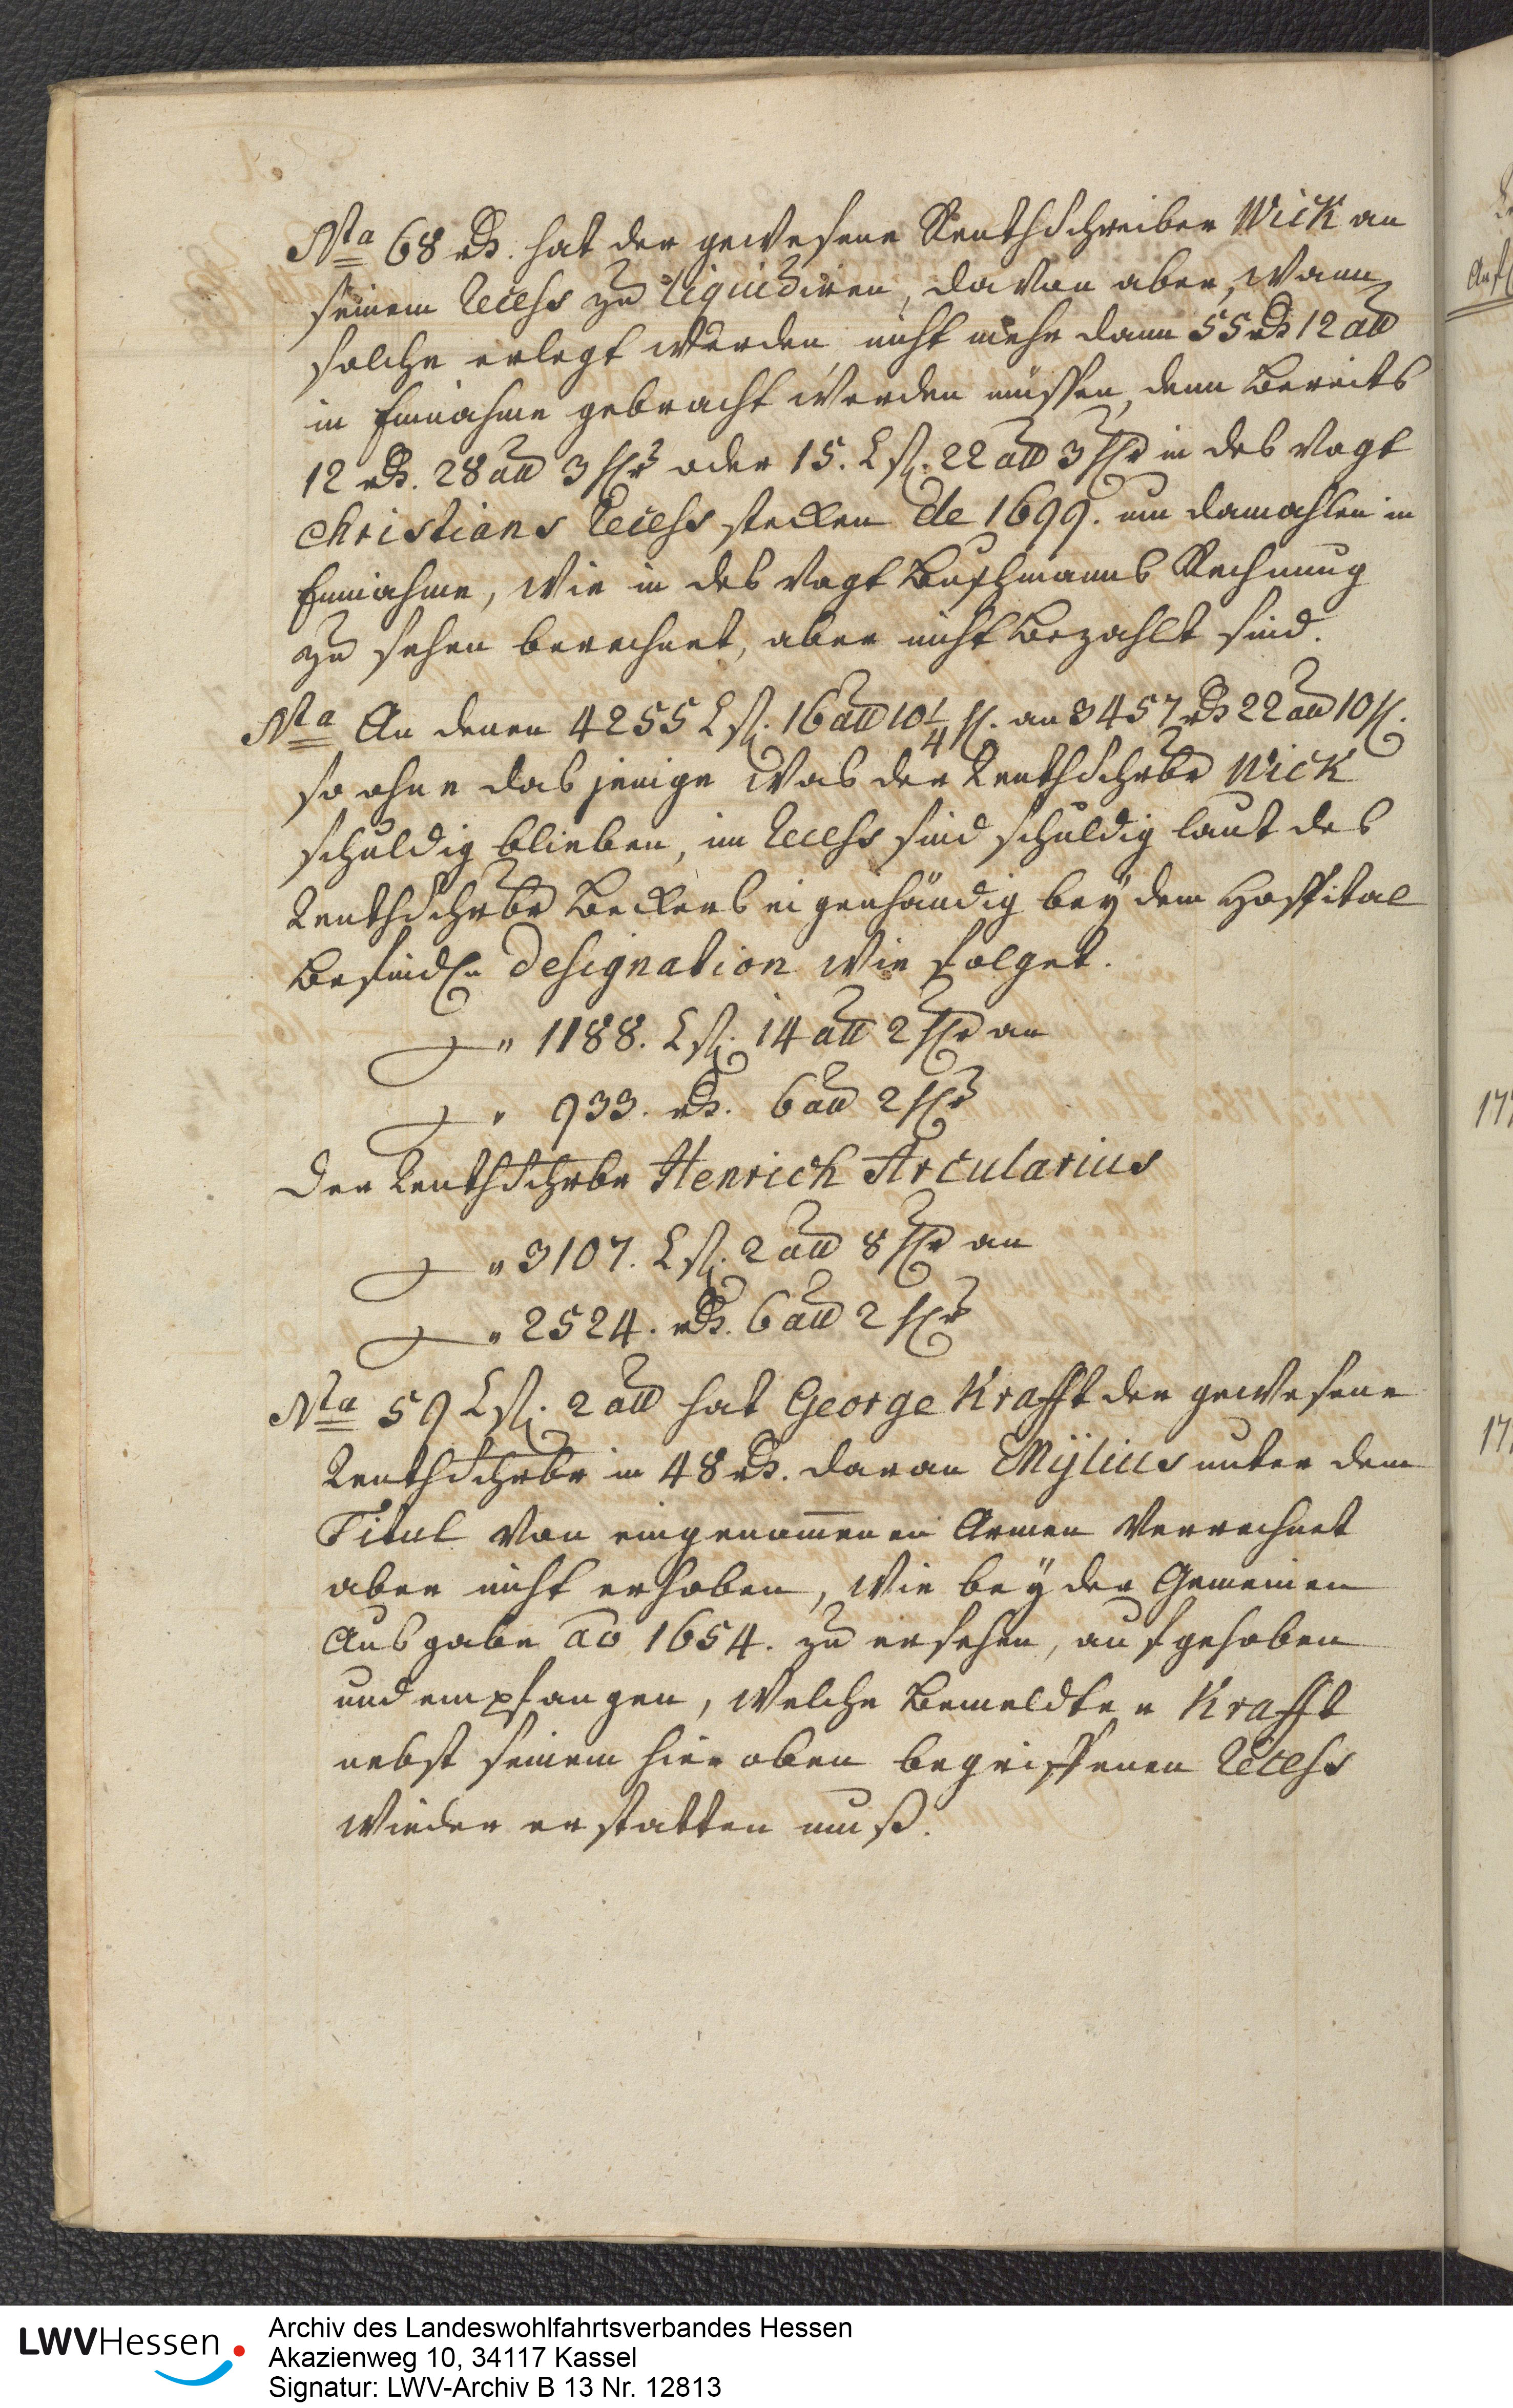 Nta 68 rh. hat der gewesene Renthschreiber Wick an
seinem Recess zu liquidiren, davon aber, wann
solche erlegt werden nicht mehr dann 55 rh 12 alb
in Einnahme gebracht werden müssen, denn bereits
12 rh. 28 alb 3 hlr oder 15. Lfl. 22 alb 3 hlr in des Vogt
Christians Recess stecken de 1699. um damahlen in
Einnahme, wie in des Vogt Buschmanns Rechnung
zu sehen berechnet, aber nicht bezahlt sind.
Nta An denen 4255 Lfl. 16 alb 10 1/4 hl. an 3457 rh 22 alb 10 hl.
so ohne das jenige was der Renthschrbr Wick
schuldig blieben, im Recess sind schuldig laut des
Renthschrbr Beckers eigenhändig bey dem Hospital
befindl. Designation wie folget.
" 1188. Lfl. 14 alb 2 hlr an
" 933. rh. 6 alb 2 hlr
Der Renthschrbr Henrich Arcularius
" 3107. Lfl. 2 alb 8 hlr an
" 2524. rh. 6 alb 2 hlr
Nta 59 Lfl. 2 alb hat George Krafft der gewesene
Renthschrbr in 48 rh. daran Mÿlius unter dem
Titul von eingenom̅enen Armen verrechnet
aber nicht erhoben, wie beÿ der Gemeinen
Ausgabe ao 1654. zu ersehen, aufgehoben
und empfangen, welche bemeldter Krafft
nebst seinem hier oben begriffenen Recess
wieder erstatten muß.
Auf
177
17
LWVHessen
Archiv des Landeswohlfahrtsverbandes Hessen
Akazienweg 10, 34117 Kassel
Signatur: LWV-Archiv B 13 Nr. 12813